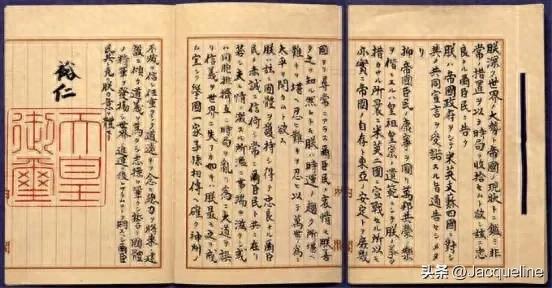 朕深ク世界ノ大勢ト帝國ノ現狀トニ鑑ミ非
常ノ措置ヲ以テ時局ヲ收拾セムト欲シ茲ニ忠
良ナル爾臣民ニ告ク
朕ハ帝國政府ヲシテ米英支蘇四國ニ對シ
其ノ共同宣言ヲ受諾スル旨通告セシメタリ
抑々帝國臣民ノ康寧ヲ圖リ萬邦共榮ノ樂
ヲ偕ニスルハ皇祖皇宗ノ遺範ニシテ朕ノ拳々
措カサル所曩ニ米英二國ニ宣戰セル所以モ
亦實ニ帝國ノ自存ト東亞ノ安定トヲ庶幾
固ヨリ尋常ニアラス爾臣民ノ衷情モ朕善
ク之ヲ知ル然レトモ朕ハ時運ノ趨ク所堪ヘ
難キヲ堪ヘ忍ヒ難キヲ忍ヒ以テ萬世ノ為ニ
太平ヲ開カムト欲ス
朕ハ茲ニ國體ヲ護持シ得テ忠良ナル爾臣
民ノ赤誠ニ信倚シ常ニ爾臣民ト共ニ在リ
若シ夫レ情ノ激スル所濫ニ事端ヲ滋クシ或
ハ同胞排擠互ニ時局ヲ亂リ為ニ大道ヲ誤
リ信義ヲ世界ニ失フカ如キハ朕最モ之ヲ戒
ム宜シク擧國一家子孫相傳ヘ確ク神州ノ
不滅ヲ信シ任重クシテ道遠キヲ念ヒ總力ヲ將來ノ建
設ニ傾ケ道義ヲ篤クシ志操ヲ鞏クシ誓テ國體
ノ精華ヲ發揚シ世界ノ進運ニ後レサラムコトヲ期スヘシ爾臣
民其レ克ク朕カ意ヲ體セヨ
裕仁
天皇
御璽
头条 @Jacqueline